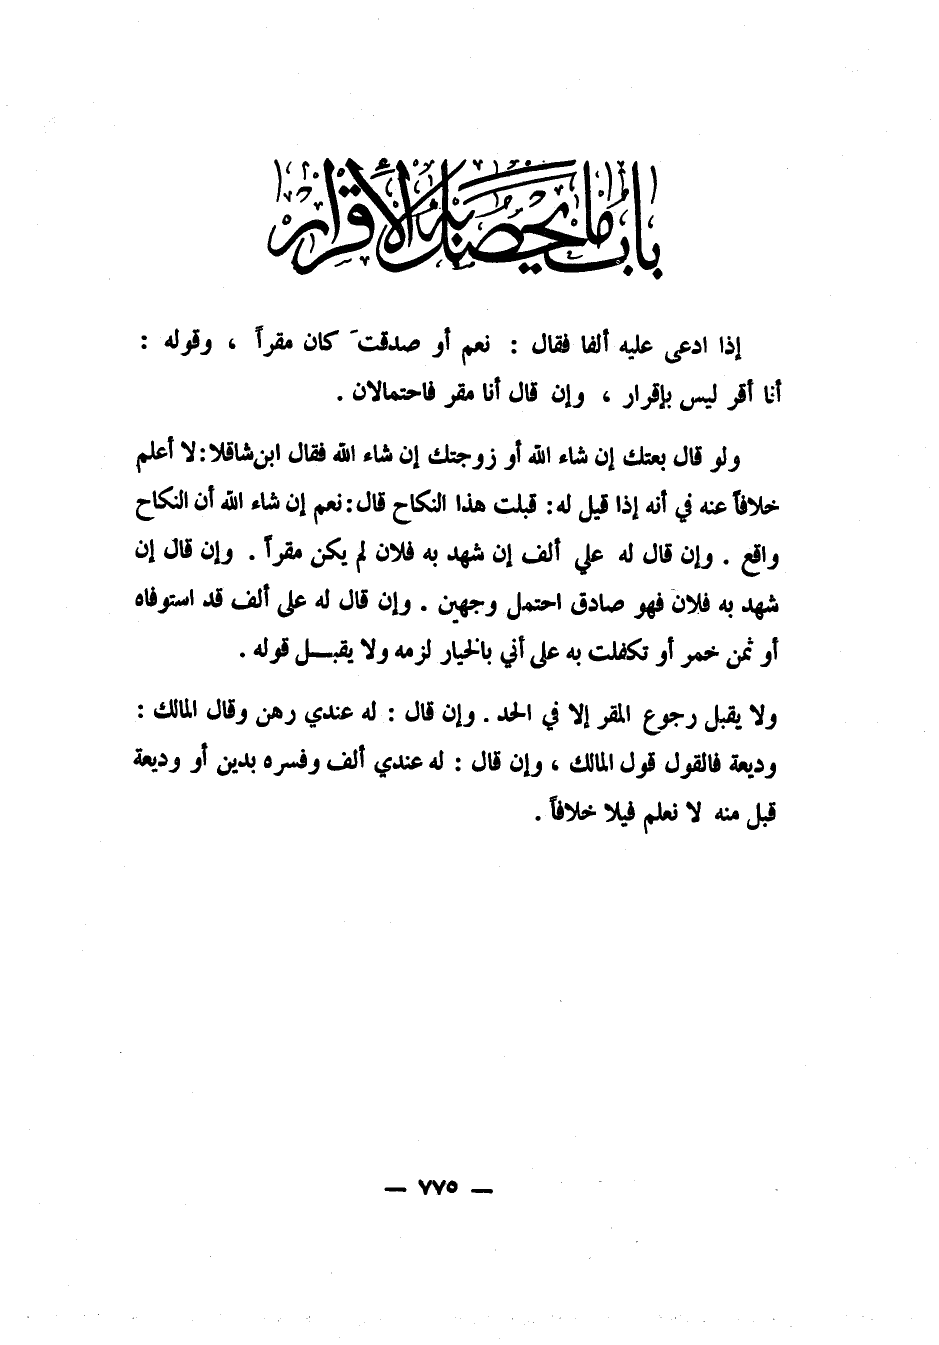 باب ما يحصل به الأقرار
إذا ادعى عليه ألفا فقال : نعم أو صدقتَ كان مقراً ، وقوله :
أنا أقر ليس بإقرار ، وإن قال أنا مقر فاحتمالان .
ولو قال بعتك إن شاء الله أو زوجتك إن شاء الله فقال ابن شاقلا : لا أعلم
خلافاً عنه في أنه إذا قيل له : قبلت هذا النكاح قال : نعم إن شاء الله أن النكاح
واقع . وإن قال له علي ألف إن شهد به فلان لم يكن مقراً . وإن قال إن
شهد به فلان فهو صادق احتمل وجهين . وإن قال له على ألف قد استوفاه
أو ثمن خمر أو تكفلت به على أني بالخيار لزمه ولا يقبـــل قوله .
ولا يقبل رجوع المقر إلا في الحد . وإن قال : له عندي رهن وقال المالك :
وديعة فالقول قول المالك ، وإن قال : له عندي ألف وفسره بدين أو وديعة
قبل منه لا نعلم فيلا خلافاً .
— ٧٧٥ —